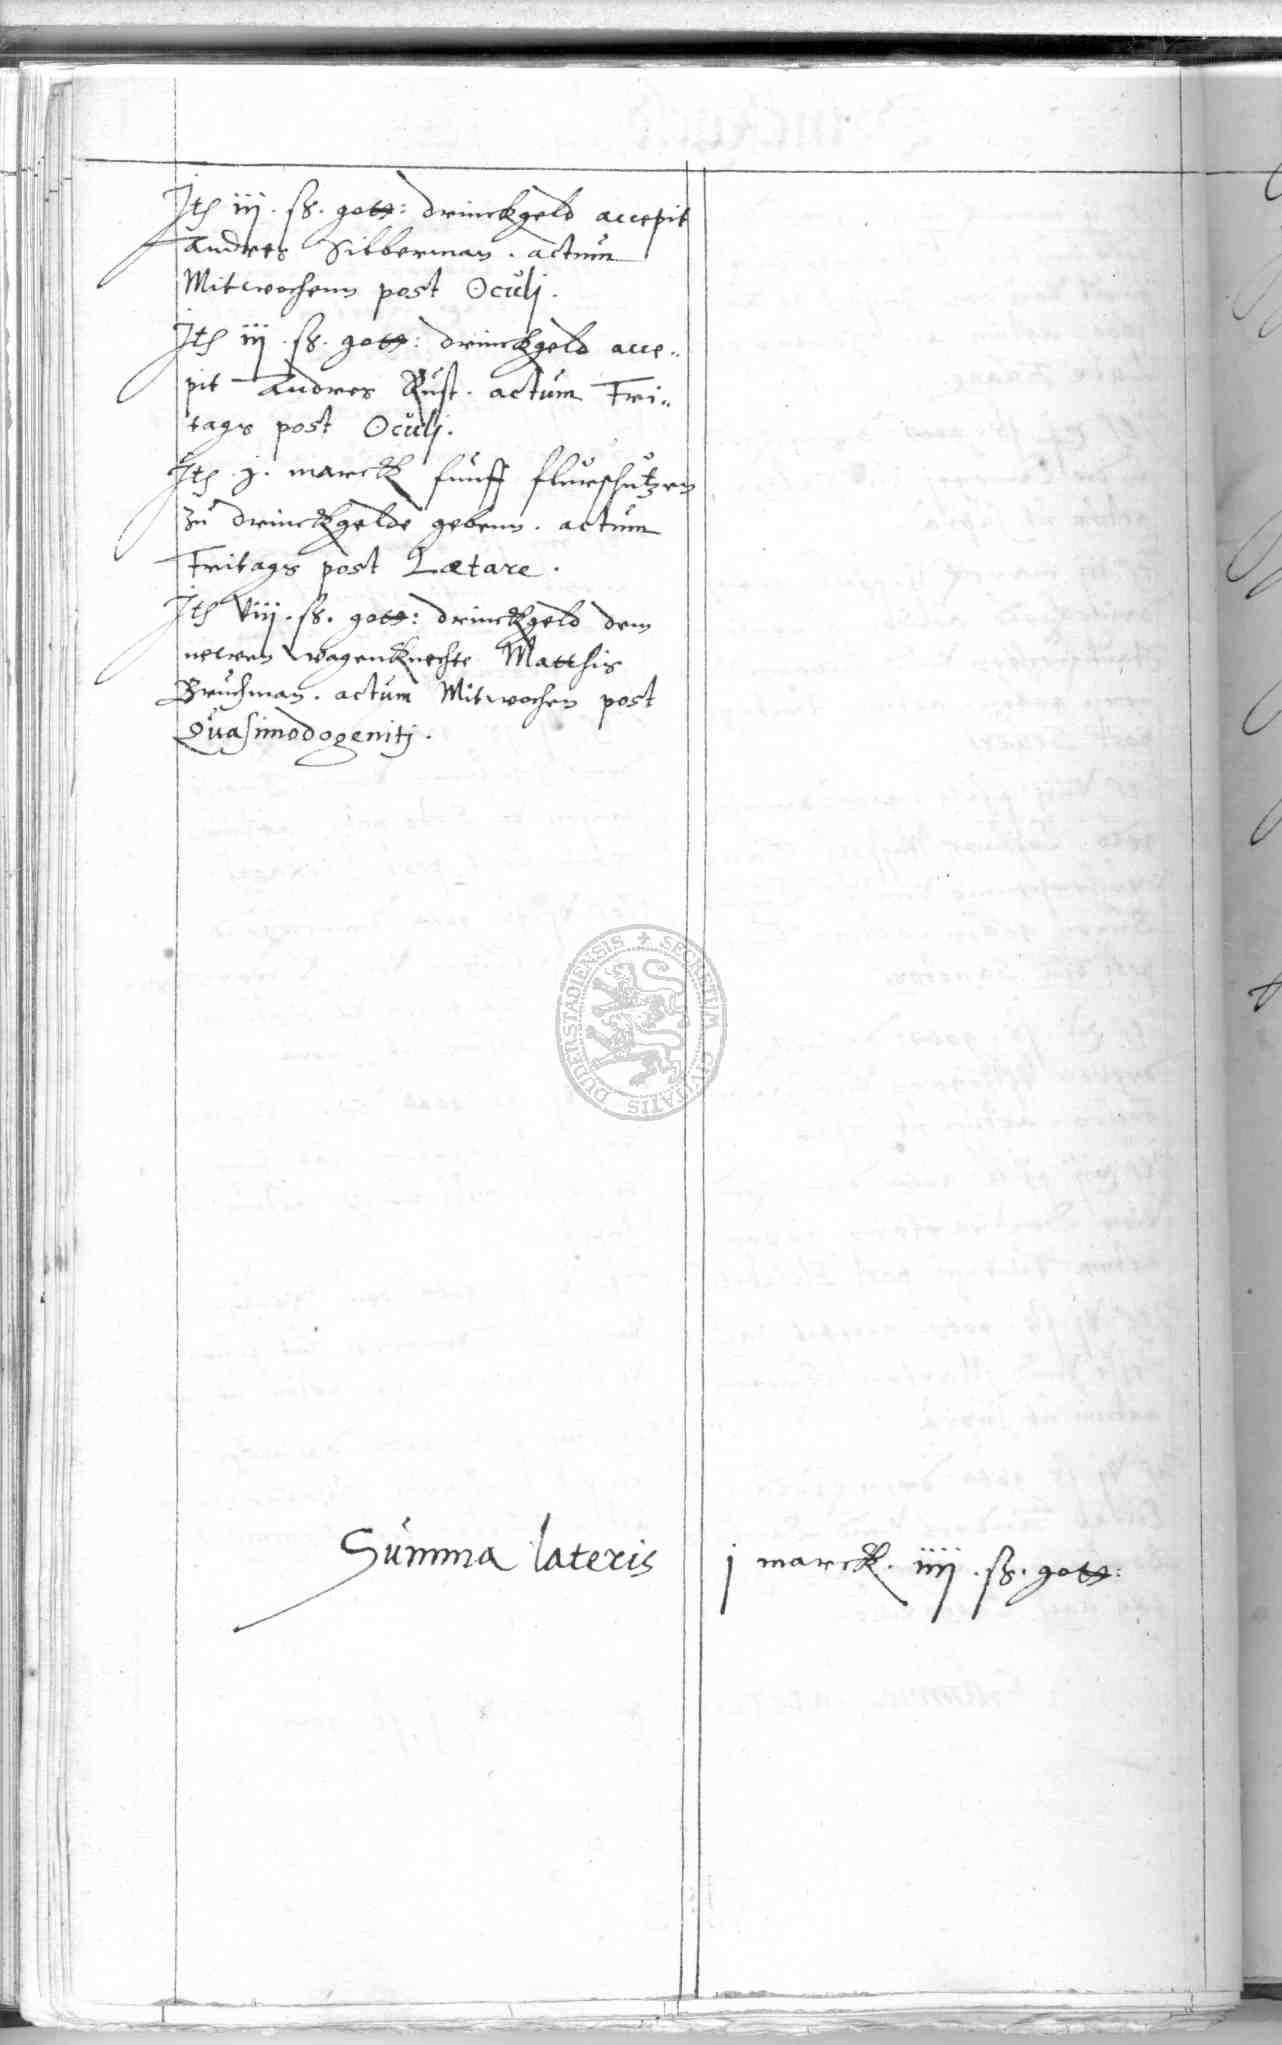 Ith iij. ß. gott: drinckgeld accepit
Andres Silberman. actum
Mitwochenn post Oculj.
Ith iij. ß. gott: drinckgeld acce„
pit Andres Rust. actum Fri„
tags post Oculj.
Ith j. marck funff flurschutzen
zu drinckgelde gebenn. actum
Fritags post Lætare.
Ith viij. ß. gott: drinckgeld dem
newen wagenknechte Matthis
Bruchman. actum Mitwochen post
Quasimodogenitj.
SECRETUM CIVITATIS DUDERSTADIENSIS
Summa lateris j marck. iiij. ß. gott: